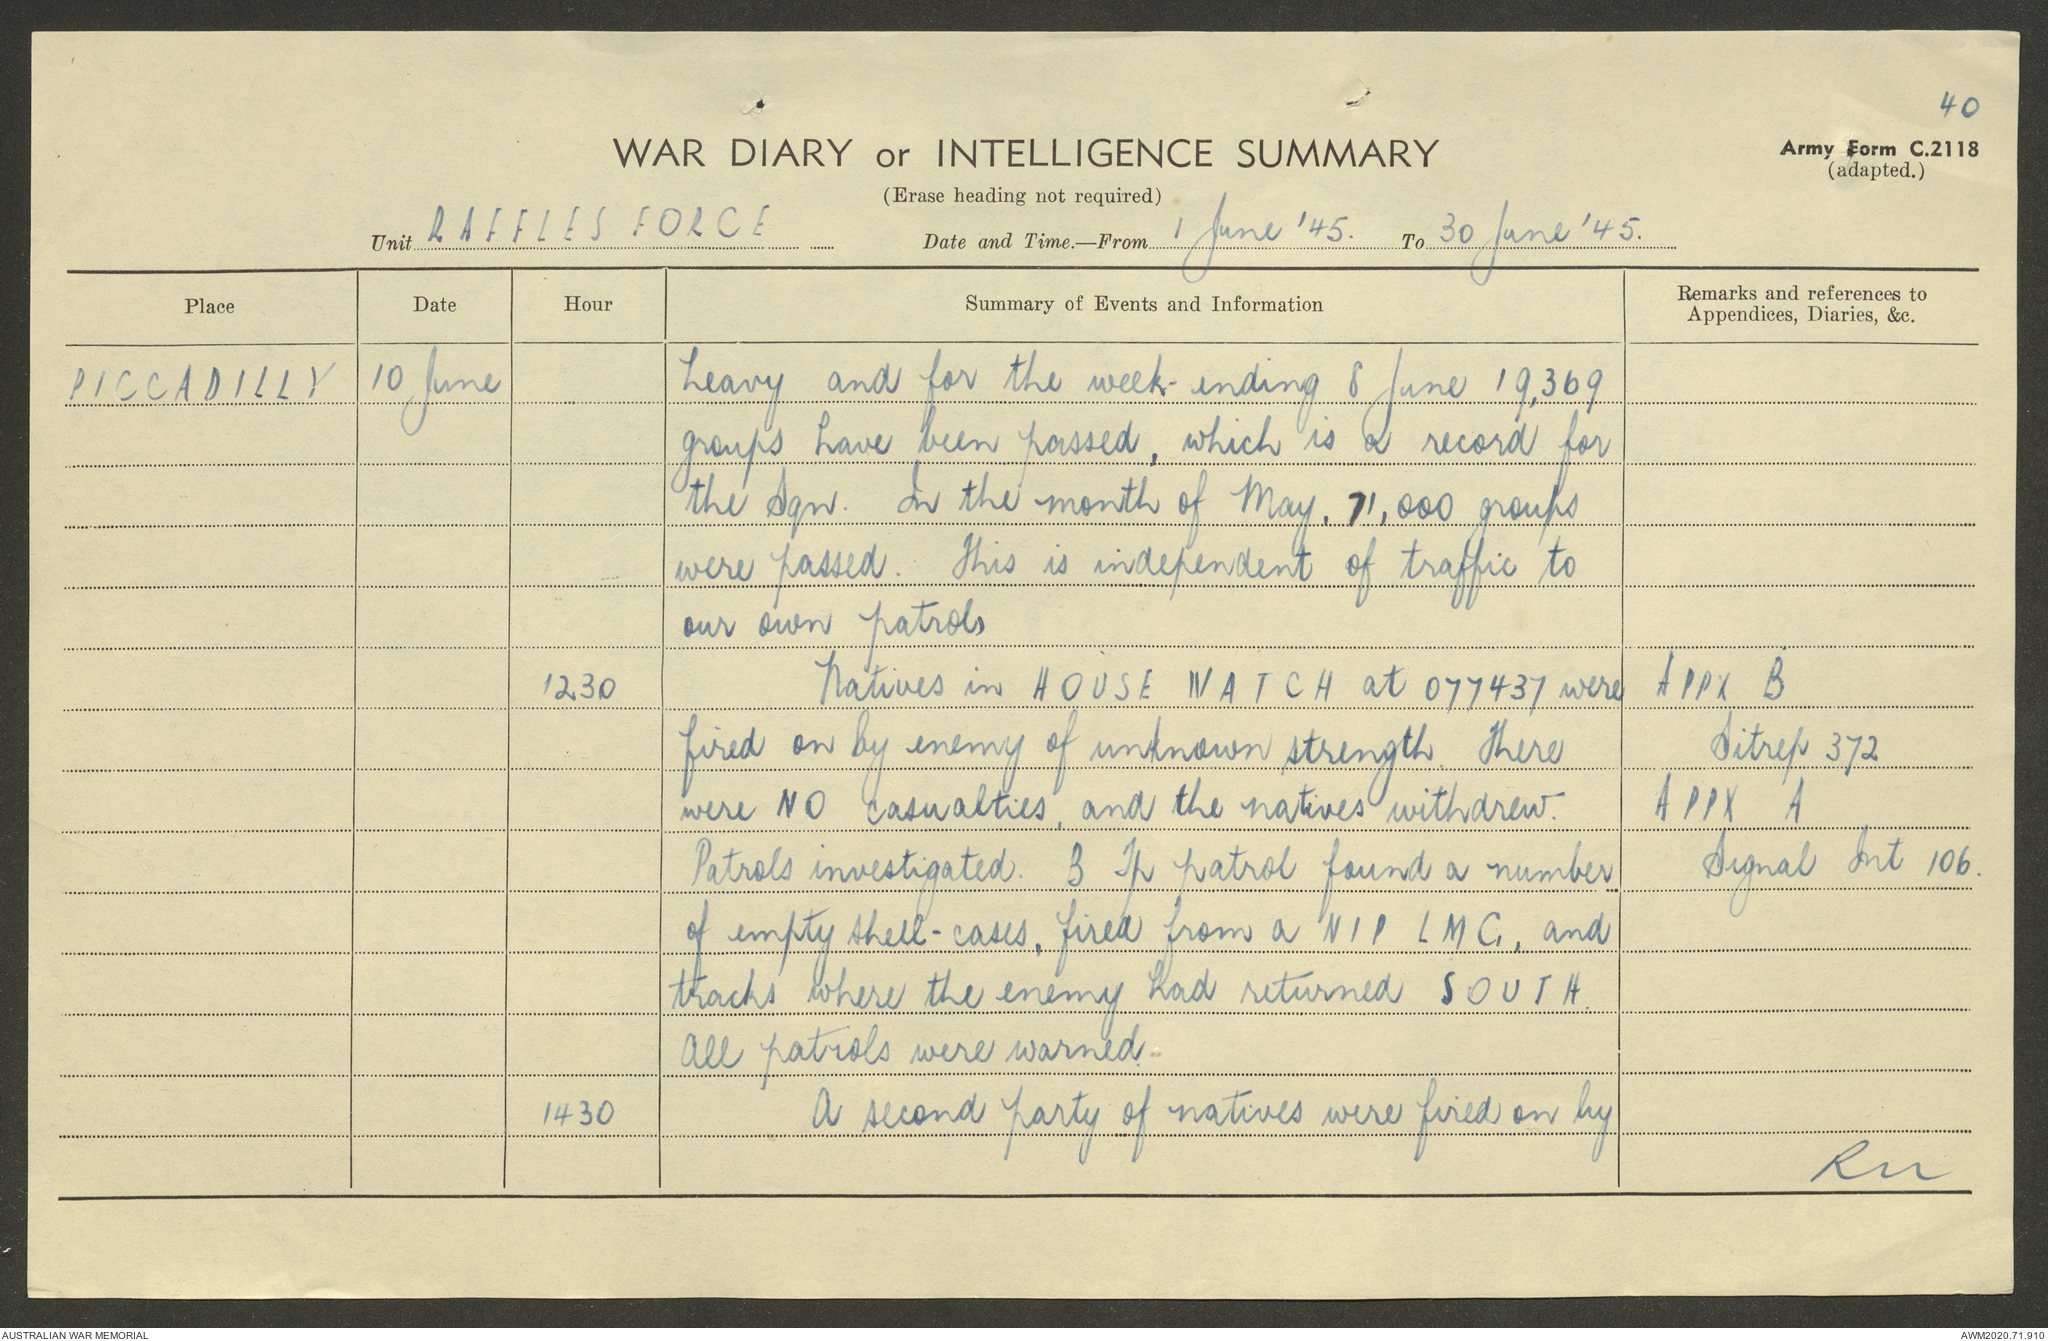 40
WAR DIARY or INTELLIGENCE SUMMARY
Army Form C.2118
(adapted.)
(Erase heading not required)
Unit RAFFLES FORCE Date and Time.—From 1 June '45. To 30 June '45.
Place Date Hour Summary of Events and Information Remarks and references to Appendices, Diaries, &c.
PICCADILLY 10 June heavy and for the week-ending 8 June 19,369
groups have been passed, which is a record for
the Sqn. In the month of May, 71,000 groups
were passed. This is independent of traffic to
our own patrols
1230 Natives in HOUSE WATCH at 077437 were APPX B
fired on by enemy of unknown strength. There Sitrep 372
were NO casualties, and the natives withdrew. APPX A
Patrols investigated. B Tp patrol found a number Signal Int 106.
of empty shell-cases, fired from a NIP LMG, and
tracks where the enemy had returned SOUTH.
All patrols were warned.
1430 A second party of natives were fired on by
AUSTRALIAN WAR MEMORIAL
AWM2020.71.910